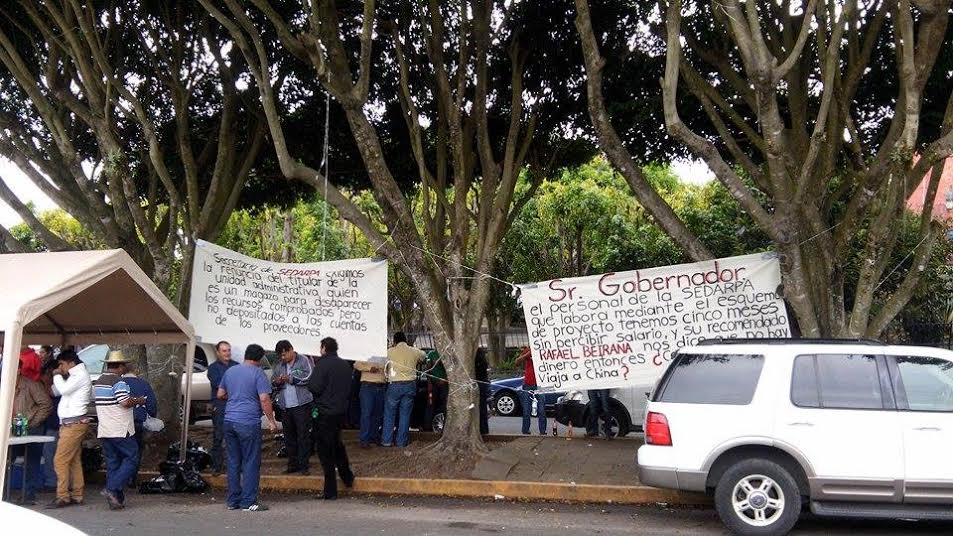 Secretario de SEDARPA exigimos
la renuncia del titular de la
unidad administrativa, quien
es un magazo para desaparecer
los recursos comprobados pero
no depositados a las cuentas
de los proveedores
Sr. Gobernador
el personal de la SEDARPA
que labora mediante el esquema
proyecto tenemos cinco meses
sin percibir salario, y su recomendado
RAFAEL BEIRANA nos dice que no hay
dinero entonces ¿
Viaja a China?